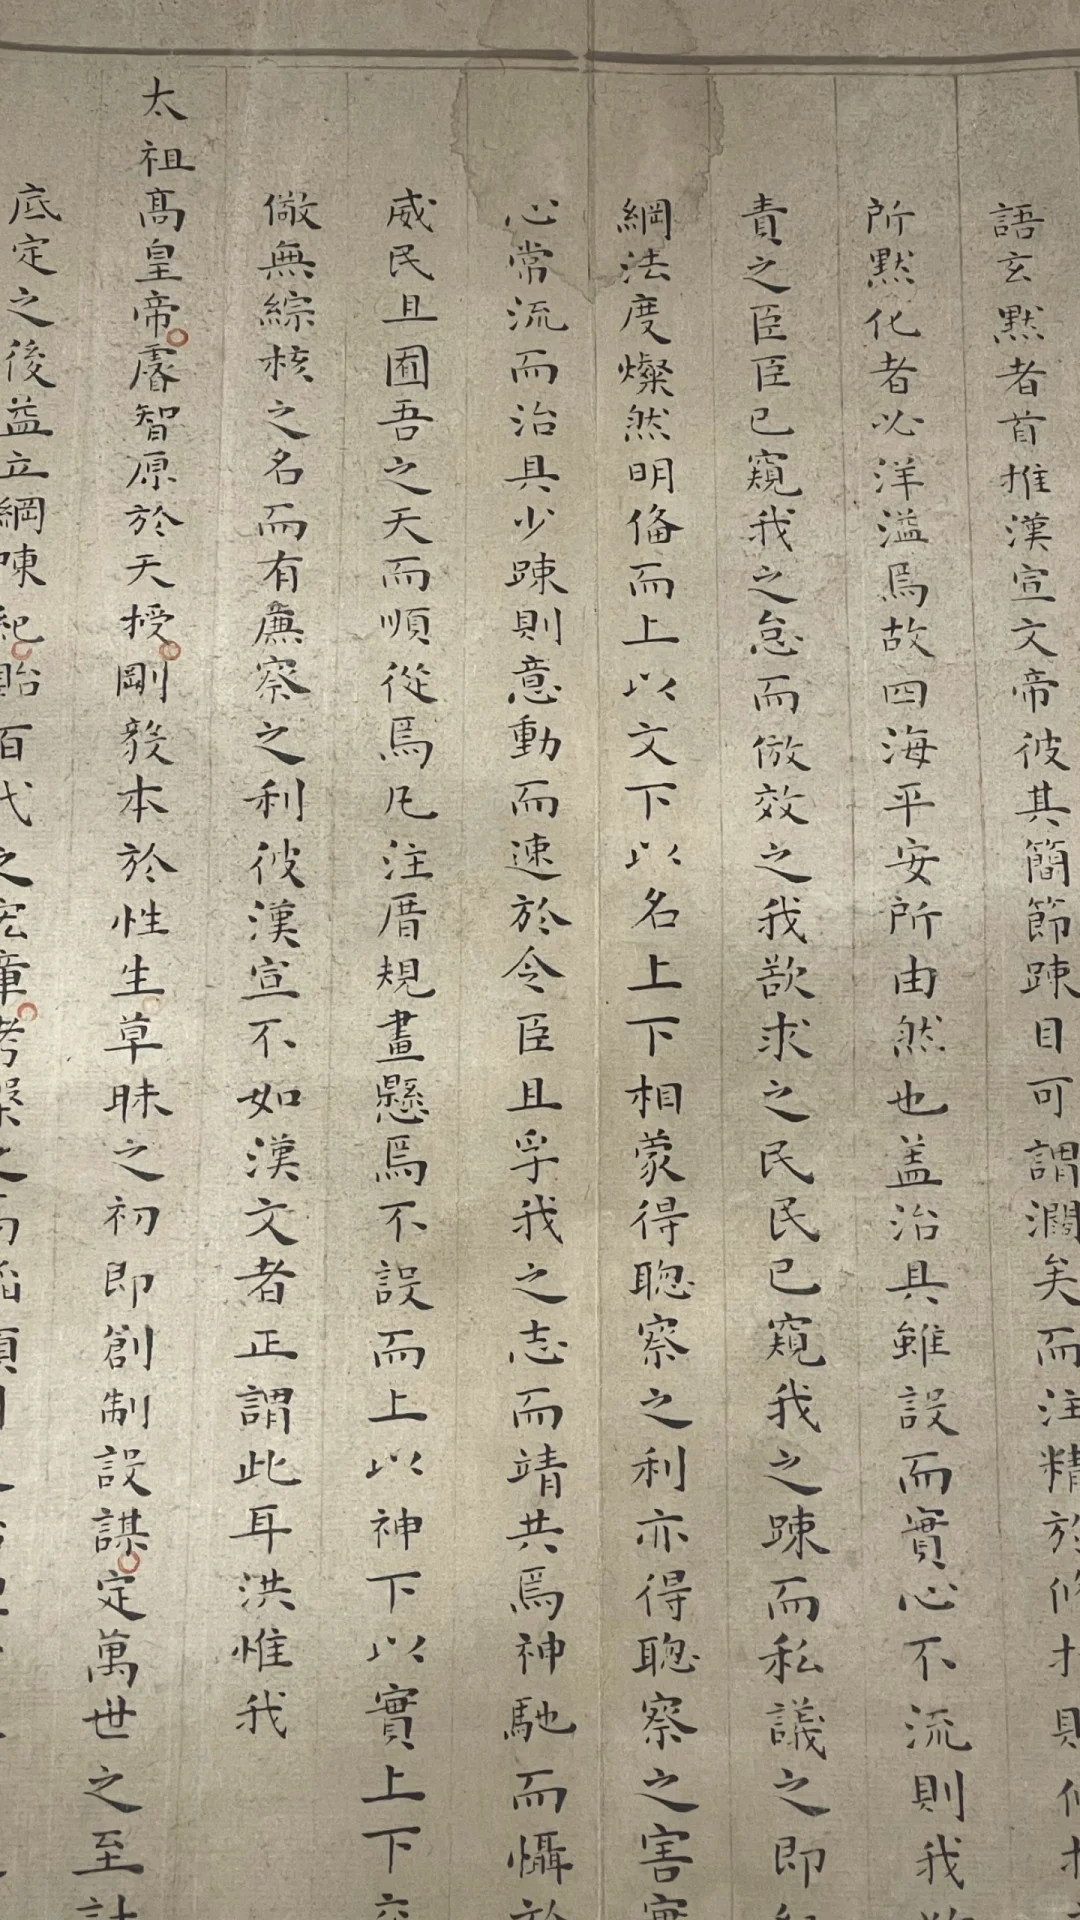 語玄黙者首推漢宣文帝彼其簡節踈目可謂濶矣而注精於
所黙化者必洋溢焉故四海平安所由然也盖治具雖設而實心不流則我
責之臣臣已窺我之怠而倣效之我欲求之民民已窺我之踈而私議之即
綱法度燦然明俻而上以文下以名上下相蒙得聰察之利亦得聰察之害
心常流而治具少踈則意動而速於令臣且孚我之志而靖共焉神馳而懾於
威民且囿吾之天而順從焉凡注厝規畫懸焉不設而上以神下以實上下
儆無綜核之名而有廡察之利彼漢宣不如漢文者正謂此耳洪惟我
太祖高皇帝睿智原於天授剛毅本於性生草昧之初即創制設謀定萬世之至計
底定之後益立綱陳紀貽百代之宏章考槃之